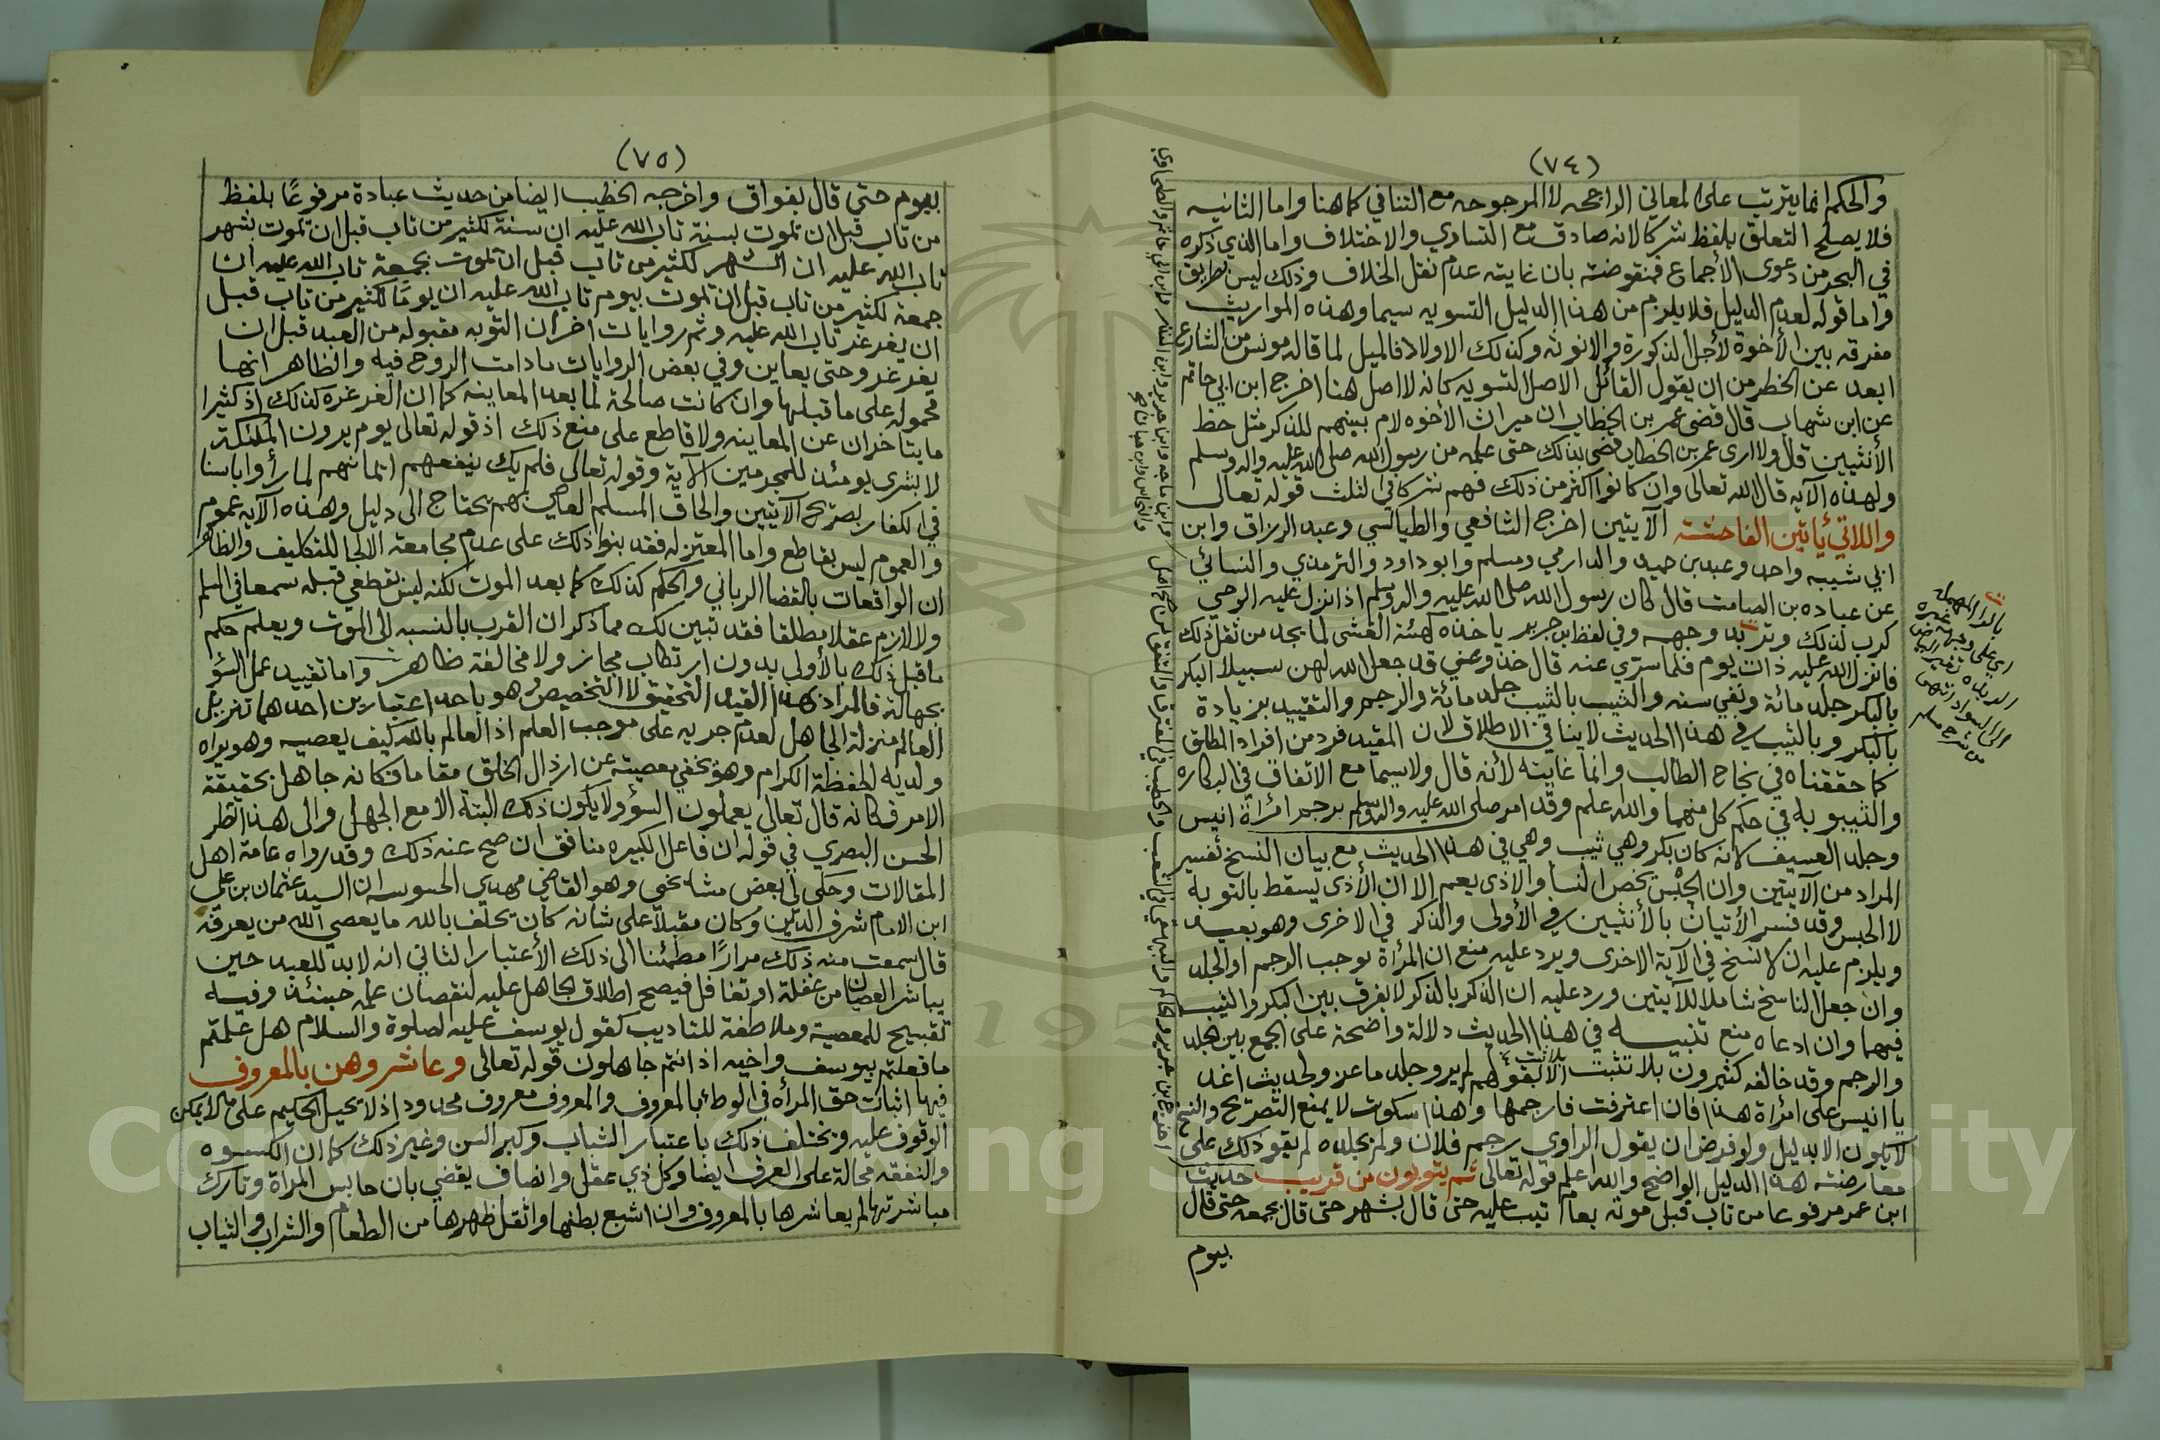 (٧٤)
والحكم انما يترتب على المعاني الراجحه لا المرجوحه مع التنافي كما هنا واما الثانيه
فلا يصلح التعلق بلفظ شركا لانه صادق مع التساوي والاختلاف واما الذي ذكره
في البحر من دعوى الأجماع فمنقوضة بان غايته عدم نقل الخلاف وذلك ليس بطريق
واما قوله لعدم الدليل فلا يلزم من هذا الدليل التسويه سيما وهذه المواريث
مفرقه بين الأخوة لأجل الذكورة والانوثه وكذلك الاولاد فالميل لما قاله مونس من الشارع
ابعد عن الخطر من ان يقول القائل الاصل التسويه كانه لا اصل هنا اخرج ابن ابي حاتم
عن ابن شهاب قال قضى عمر بن الخطاب ان ميراث الأخوه لام بينهم للذكر مثل حظ
الأنثيين قال ولا ارى عمر بن الخطاب قضى بذلك حتى علمه من رسول الله صلى الله عليه واله وسلم
ولهذه الآيه قال الله تعالى وان كانوا اكثر من ذلك فهم شركا في الثلث قوله تعالى
واللاتي يأتين الفاحشة الآيتين اخرج الشافعي والطيالسي وعبد الرزاق وابن
ابي شيبه واحد وعبد بن حميد والدارمي ومسلم وابو داود والترمذي والنسائي
عن عباده بن الصامت قال كان رسول الله صلى الله عليه واله وسلم اذا نزل عليه الوحي
كرب لذلك وتربد وجهه وفي لفظ ابن جرير ياخذه كهيئة الغشى لما يجد من ثقل ذلك
فانزل الله عليه ذات يوم فلما سري عنه قال خذوا عني قد جعل الله لهن سبيلا البكر
بالبكر جلد مائة ونفي سنه والثيب بالثيب جلد مائة والرجم والتقييد بزيادة
بالبكر وبالثيب في هذا الحديث لا ينافي الاطلاق لان المقيد فرد من افراد المطلق
كما حققناه في نجاح الطالب وانما غايته لأنه قال ولا سيما مع الاتفاق في البكاره
والثيبوبه في حكم كل منهما والله علم وقد امر صلى الله عليه واله وسلم برجم امرأة انيس
وجلد العسيف لانه كان بكر وهي ثيب وهي في هذا الحديث مع بيان النسخ تفسير
المراد من الآيتين وان الحبس يخص النسا والاذى يعم الا ان الأذى يسقط بالتوبه
لا الحبس وقد فسر الأتيان بالأنثيين في الأولى والذكر في الاخرى وهو بعيد
ويلزم عليه ان لا نسخ في الآية الاخرى ويرد عليه منع ان المرأة توجب الرجم او الجلد
وان جعل الناسخ شاملا للآيتين ورد عليه ان الذكر بالذكر لا يفرق بين البكر والثيب
فيهما وان ادعاه منع تنبيه في هذا الحديث دلالة واضحة على الجمع بين الجلد
والرجم وقد خالفه كثيرون بلا تثبت لم يرو جلد ماعز ولحديث اغد
يا انيس على امرأة هذا فان اعترفت فارجمها وهذا سكوت لا يمنع التصريح والنسخ
لا يكون الا بدليل ولو فرض ان يقول الراوي رجم فلان ولم يجلده لم يقو ذلك على
معارضة هذا الدليل الواضح والله اعلم قوله تعالى ثم يتوبون من قريب حديث
ابن عمر مرفوعا من تاب قبل موته بعام تيب عليه حتى قال بشهر حتى قال بجمعه حتى قال
بيوم
بالدال المهمله
اي على وجهه غبره
الربده تغير البياض
الى السواد انتهى
من شرح مسلم
(٧٥)
بيوم حتى قال بفواق واخرجه الخطيب ايضا من حديث عبادة مرفوعًا بلفظ
من تاب قبل ان تموت بسنة تاب الله عليه ان سنة لكثير من تاب قبل ان تموت بشهر
تاب الله عليه ان الشهر لكثير من تاب قبل ان تموت بجمعة تاب الله عليه ان
جمعة لكثير من تاب قبل ان تموت بيوم تاب الله عليه ان يومًا لكثير من تاب قبل
ان يغرغر تاب الله عليه وثم روايات اخر ان التوبه مقبوله من العبد قبل ان
يغرغر وحتى يعاين وفي بعض الروايات مادامت الروح فيه والظاهر انها
محموله على ما قبلها وان كانت صالحة لما بعد المعاينه كما ان الغرغره كذلك اذ كثيرا
ما يتاخران عن المعاينه ولا قاطع على منع ذلك اذ قوله تعالى يوم يرون الملئكة
لا بشرى يومئذ للمجرمين الآية وقوله تعالى فلم يك ينفعهم ايمانهم لما رأوا باسنا
في الكفار بصريح الآيتين والحاق المسلم العاصي بهم يحتاج الى دليل وهذه الآيه عموم
والعموم ليس بقاطع واما المعتزله فقد بنوا ذلك على عدم مجامعة الالجا للتكليف والظاهر
ان الواقعات بالقضا الرباني والحكم كذلك كما بعد الموت لكنه ليس بقطعي قبله سمعا في المسلم
ولا لازم عقلا مطلقا فقد تبين لك مما ذكر ان القرب بالنسبه الى الموت ويعلم حكم
ما قبل ذلك بالأولى بدون ارتكاب مجاز ولا مخالفة ظاهر واما تقييد عمل السؤ
بجهالة فالمراد بهذا القيد التحقيق لا التخصيص وهو باحد اعتبارين احدهما تنزيل
العالم منزلة الجاهل لعدم جريه على موجب العلم اذ العالم بالله كيف يعصيه وهو يراه
ولديه الحفظة الكرام وهو يخفي معصيته عن ارذال الخلق مقاما فكانه جاهل بحقيقة
الامر فكانه قال تعالى يعملون السؤ ولا يكون ذلك البتة الا مع الجهل والى هذا نظر
الحسن البصري في قوله ان فاعل الكبيره منافق ان صح عنه ذلك وقد رواه عامة اهل
المقالات وحكى لي بعض مشايخي وهو القاضي مهدي الحسوسه ان السيد عثمان بن علي
ابن الامام شرف الدين وكان مقبلا على شانه كان يحلف بالله ما يعصي الله من يعرفه
قال سمعت منه ذلك مرارًا مطمئنا الى ذلك الأعتبار الثاني انه لابد للعبد حين
يباشر العصيان من غفلة او تغافل فيصح اطلاق الجاهل عليه لنقصان علمه حينئذ وفيه
تقبيح للمعصية وملاطفة للتاديب كقول يوسف عليه لصلوة والسلام هل علمتم
ما فعلتم بيوسف واخيه اذ انتم جاهلون قوله تعالى وعاشروهن بالمعروف
فيها اثبات حق المرأه في الوطء بالمعروف والمعروف معروف محدود اذ لا يحيل الحكيم على ما لا يمكن
الوقوف عليه ويختلف ذلك باعتبار الشباب وكبر السن وغير ذلك كما ان الكسوه
والنفقه محالة على العرف ايضا وكل ذي عقل وانصاف يقضي بان حابس المرأة وتارك
مباشرتها لم يعاشرها بالمعروف وان اشبع بطنها واثقل ظهرها من الطعام والشراب والثياب
Copyright © King Saud University
195